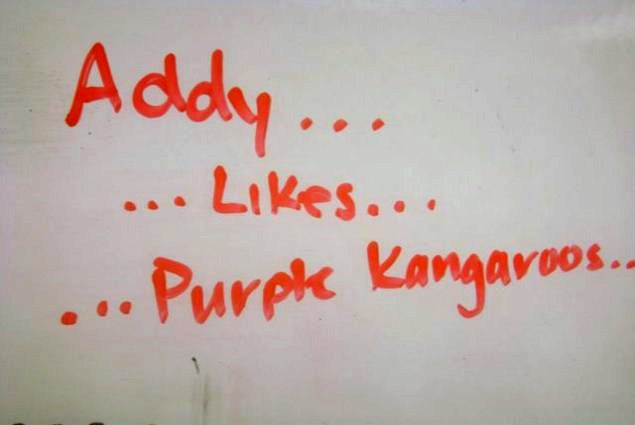 Addy...
...Likes...
...Purple Kangaroos..